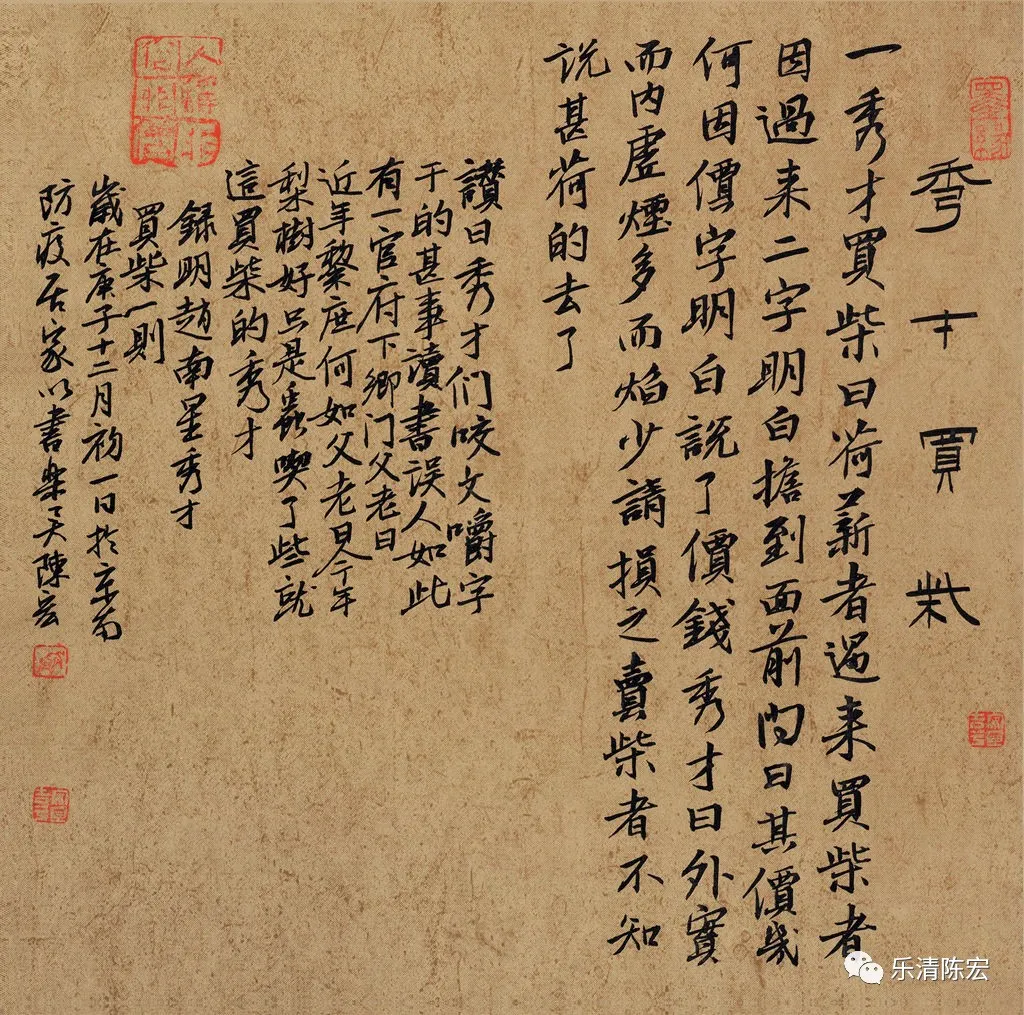 秀才買柴
一秀才買柴曰荷薪者過来買柴者
因過来二字明白擔到面前问曰其價幾
何因價字明白說了價錢秀才曰外實
而内虚煙多而焰少請損之賣柴者不知
說甚荷的去了
讚曰秀才们咬文嚼字
干的甚事讀書误人如此
有一官府下鄉门父老曰
近年黎庶何如父老曰今年
梨樹好只是蟲喫了些就
這買柴的秀才
録明趙南星秀才
買柴一則
歲在庚子十二月初一日於京南
防疫居家以書樂天陳宏
乐清陈宏